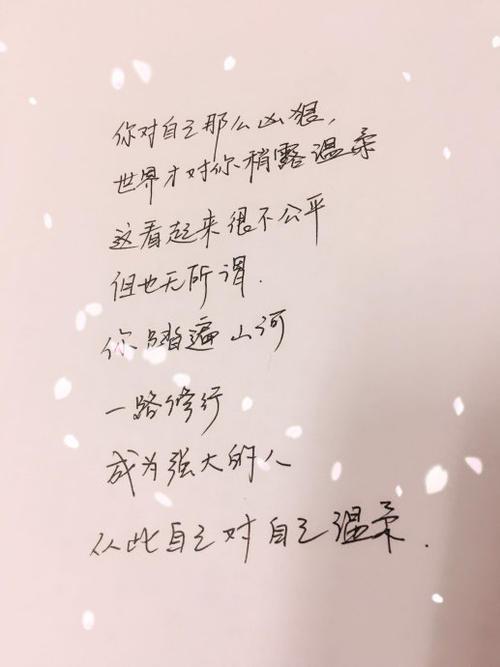 你对自己那么凶狠，
世界才对你稍露温柔
这看起来很不公平
但也无所谓.
你踏遍山河
一路修行
成为强大的人
从此自己对自己温柔.